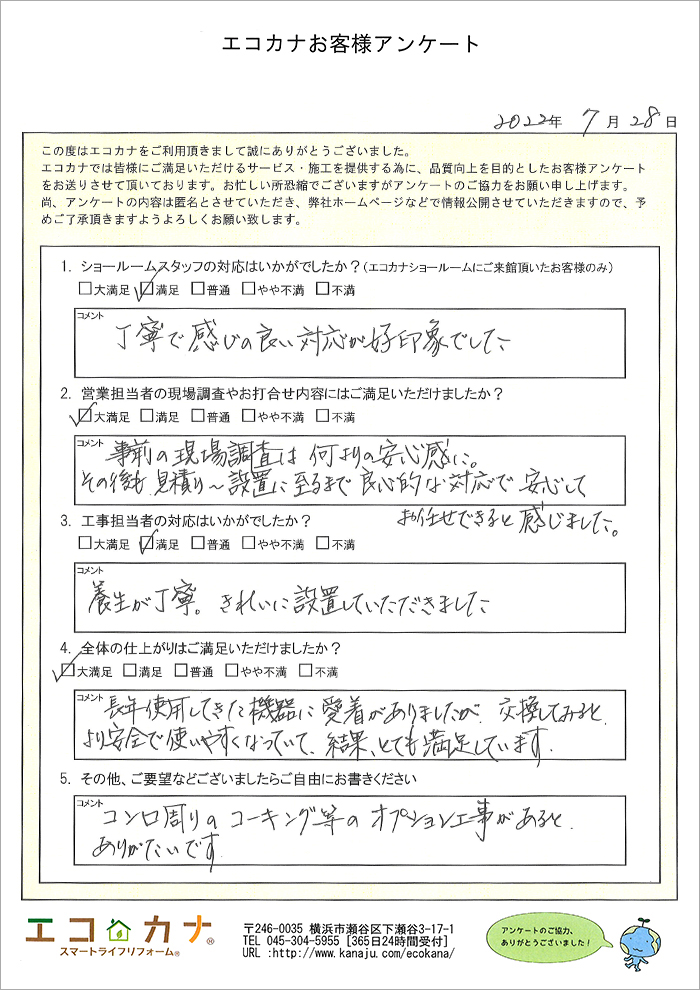 エコカナお客様アンケート
2022年 7月 28日
この度はエコカナをご利用頂きまして誠にありがとうございました。
エコカナでは皆様にご満足いただけるサービス・施工を提供する為に、品質向上を目的としたお客様アンケート
をお送りさせて頂いております。お忙しい所恐縮でございますがアンケートのご協力をお願い申し上げます。
尚、アンケートの内容は匿名とさせていただき、弊社ホームページなどで情報公開させていただきますので、予
めご了承頂きますようよろしくお願い致します。
1. ショールームスタッフの対応はいかがでしたか？(エコカナショールームにご来館頂いたお客様のみ)
□大満足 ☑満足 □普通 □やや不満 □不満
コメント
丁寧で感じの良い対応が好印象でした
2. 営業担当者の現場調査やお打合せ内容にはご満足いただけましたか？
☑大満足 □満足 □普通 □やや不満 □不満
コメント
事前の現場調査は何よりの安心感に。
その後も見積り～設置に至るまで良心的な対応で安心して
お任せできると感じました。
3. 工事担当者の対応はいかがでしたか？
□大満足 ☑満足 □普通 □やや不満 □不満
コメント
養生が丁寧。きれいに設置していただきました
4. 全体の仕上がりはご満足いただけましたか？
☑大満足 □満足 □普通 □やや不満 □不満
コメント
長年使用してきた機器に愛着がありましたが、交換してみると、
より安全で使いやすくなっていて、結果、とても満足しています。
5. その他、ご要望などございましたらご自由にお書きください
コメント
コンロ周りのコーキング等のオプション工事があると、
ありがたいです。
エコカナ®
スマートライフリフォーム®
〒246-0035 横浜市瀬谷区下瀬谷3-17-1
TEL 045-304-5955 [365日24時間受付]
URL :http://www.kanaju.com/ecokana/
アンケートのご協力、
ありがとうございました！